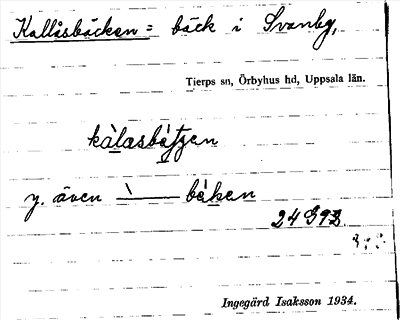 Kallåsbäcken = bäck i Svanby,
Tierps sn, Örbyhus hd, Uppsala län.
kàlasbä́tjen
y. även \ —— bä́ken
Ingegärd Isaksson 1934.